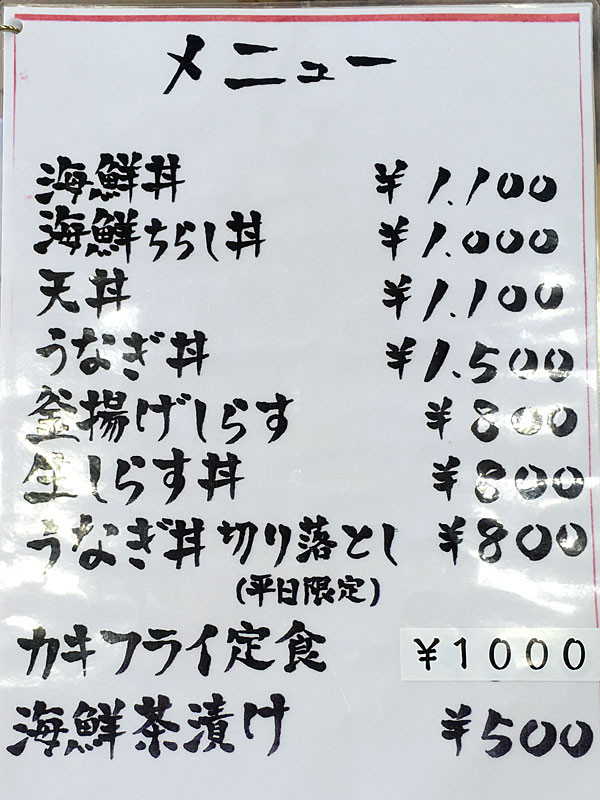 メニュー
海鮮丼 ¥1.100
海鮮ちらし丼 ¥1.000
天丼 ¥1.100
うなぎ丼 ¥1.500
釜揚げしらす ¥800
生しらす丼 ¥800
うなぎ丼切り落とし ¥800
(平日限定)
カキフライ定食 ¥1000
海鮮茶漬け ¥500